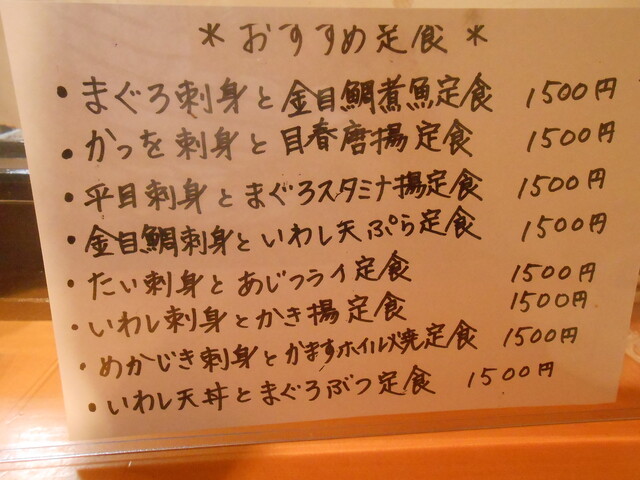 *おすすめ定食*
・まぐろ刺身と金目鯛煮魚定食 1500円
・かつを刺身と目春磨揚定食 1500円
・平目刺身とまぐろスタミナ揚定食 1500円
・金目鯛刺身といわし天ぷら定食 1500円
・たい刺身とあじフライ定食 1500円
・いわし刺身とかき揚定食 1500円
・めかじき刺身とかますホイル焼定食 1500円
・いわし天丼とまぐろぶつ定食 1500円